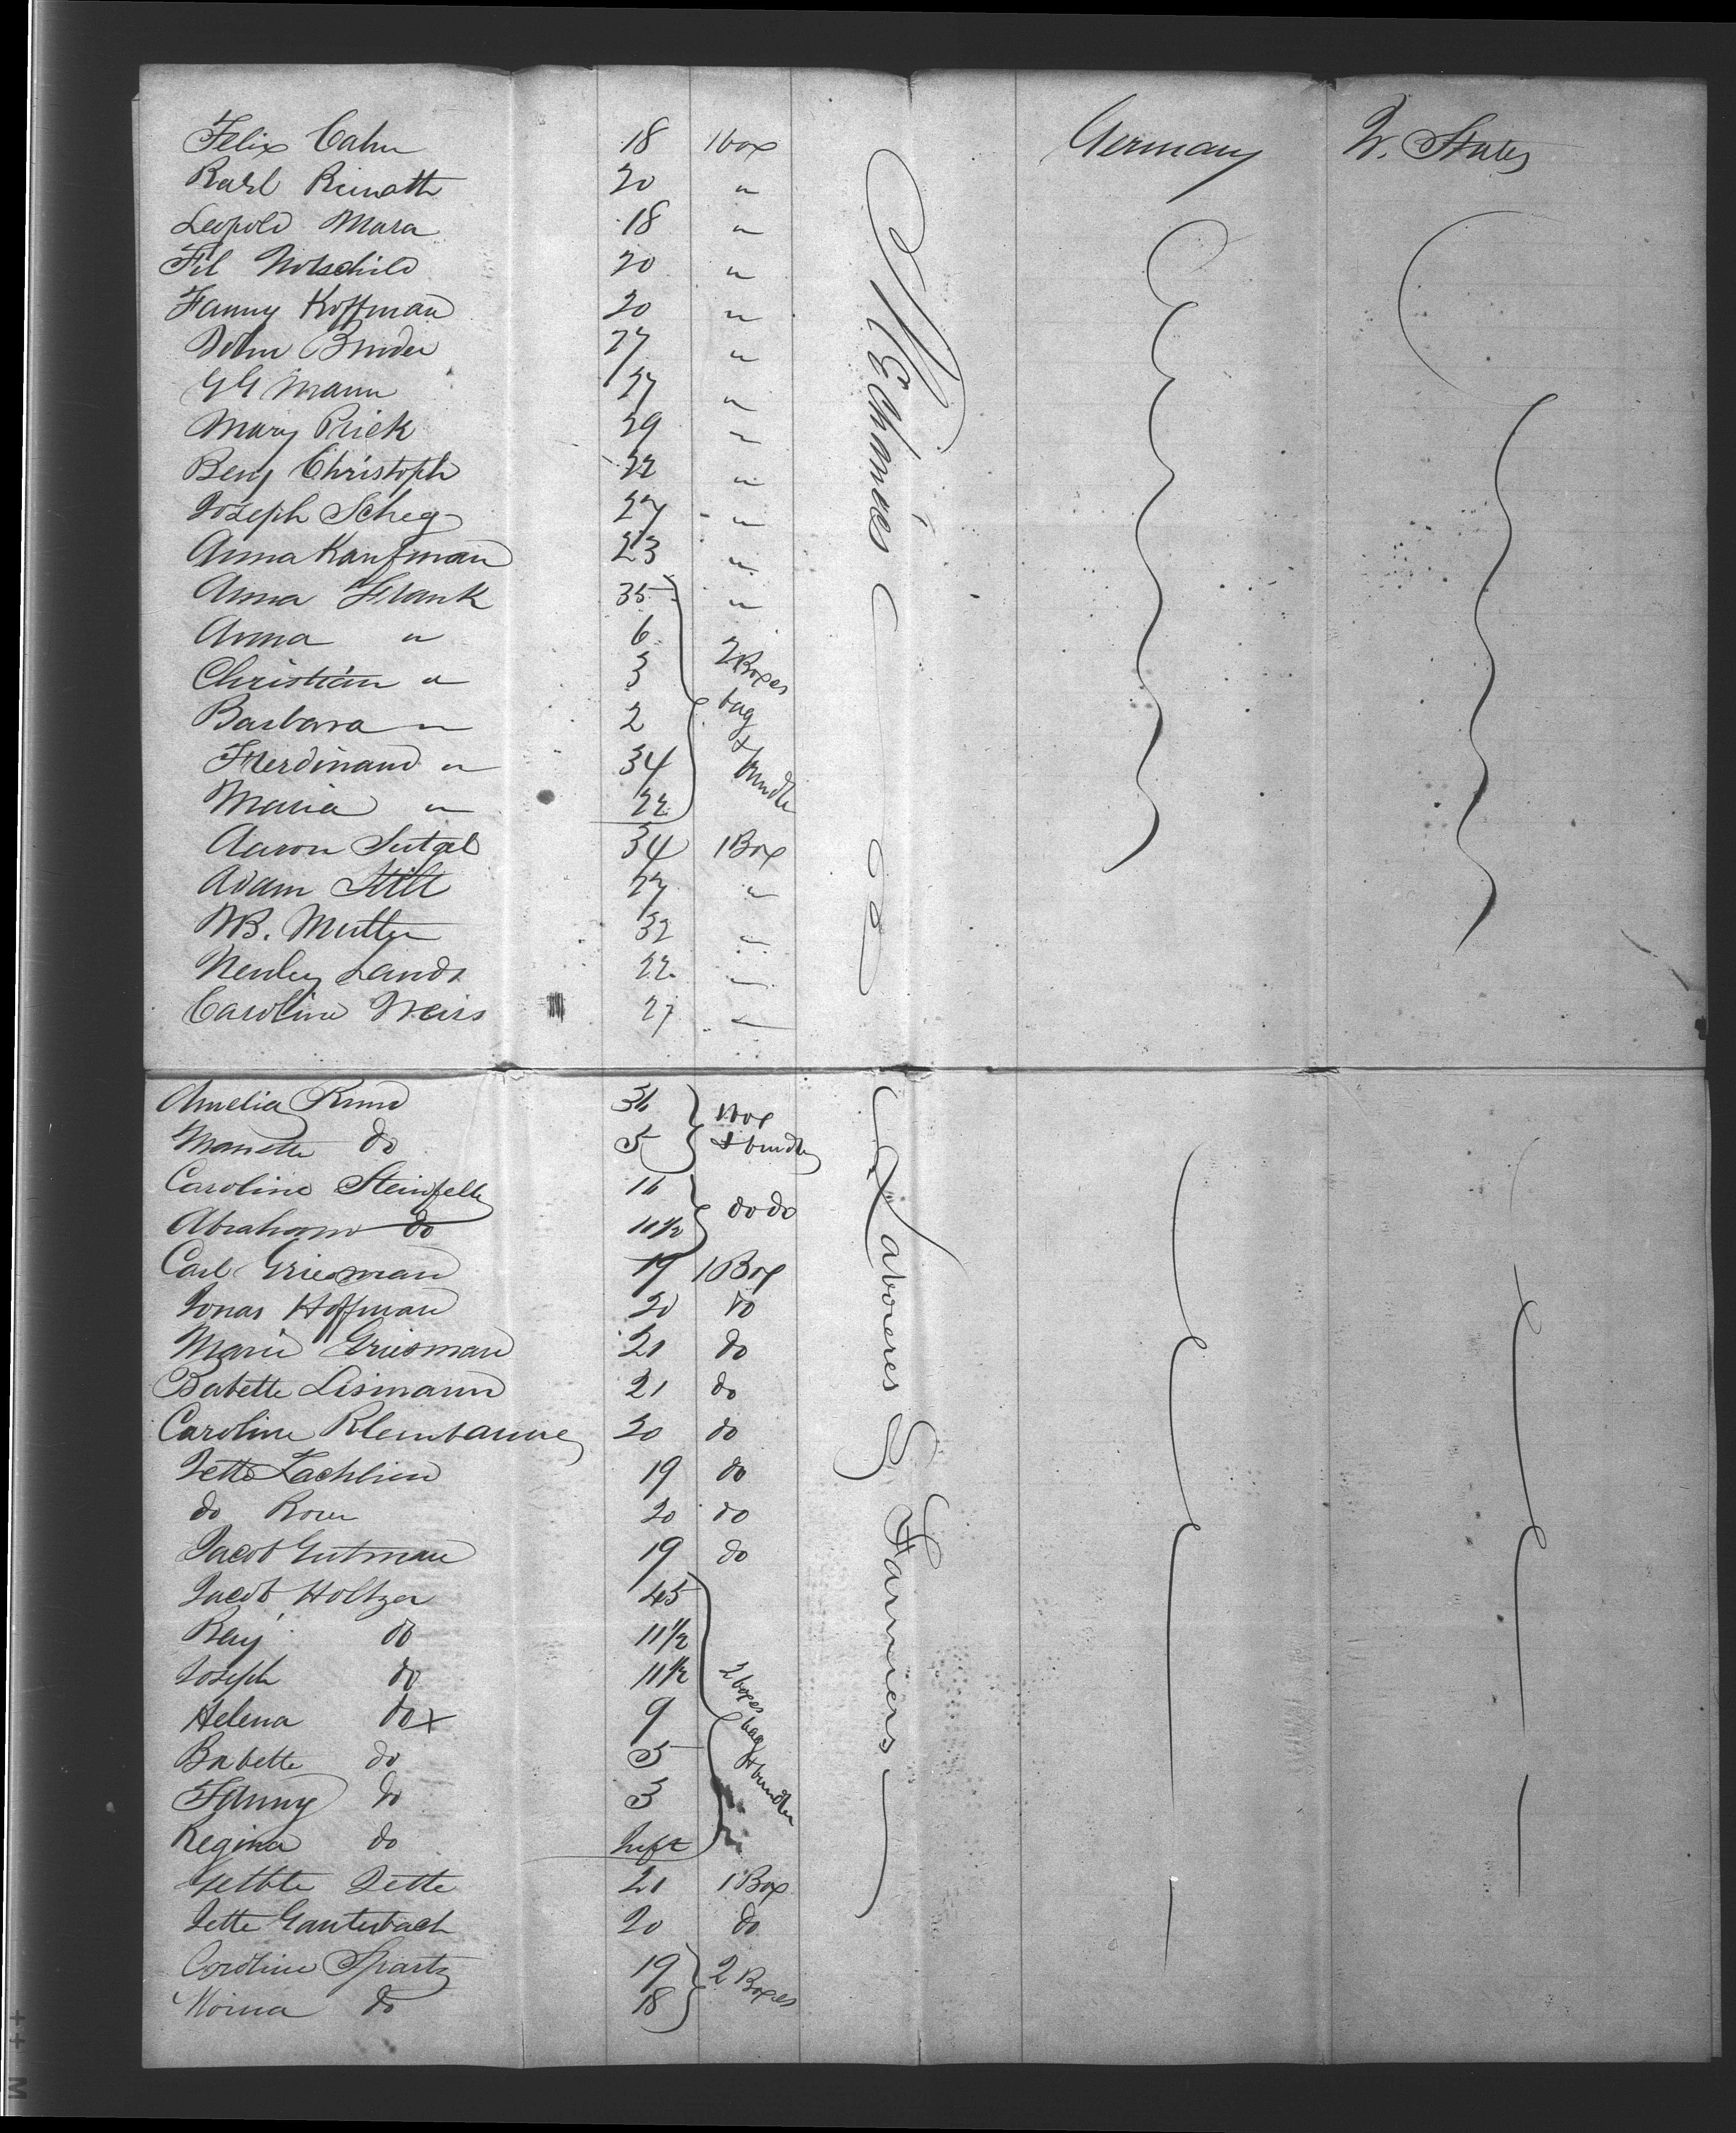 Felix Cahn 18 1 box Germany U. States
Karl Rimoth 20 "
Leopold Mara 18 "
Fil Rotschild 20 "
Fanny Koffman 20 "
John Binder 27 "
G G Mann 27 "
Mary Rick 29 "
Benj Christoph 22 "
Joseph Scheg 27 "
Anna Kaufman 23 "
Anna Frank 35 "
Anna " 6
Christian " 3 2 Boxes
Barbara " 2 bag
Frerdinand " 34 &
Maria " 22 bundle
Mechanics
Aaron Sutgel 34 1 Box
Adam Still 27 "
WB. Mutter 32 "
Henley Lands 22 "
Caroline Weiss 27 "
Amelia Kund 36 1 box
Manette do 5 & bundle
Caroline Steinfelt 16 do do
Abraham do 11 1/2
Carl Griesman 19 1 Box
Jonas Hoffman 20 do
Marie Griesman 21 do
Babette Lismann 21 do
Caroline Kleinbaume 20 do
Jette Lachlien 19 do
do Rosa 20 do
Jacob Gutman 19 do
Jacob Holtzer 45
Benj do 11 1/2
Joseph do 11 1/2 2 boxes
Helena do x 9 bag
Babette do 5 & bundle
Fanny do 3
Regina do Inft
Jette 21 1 Box
Jette Gauterbach 20 do
Caroline Spartz 19 2 Boxes
do 18
Laboreres & Farmers